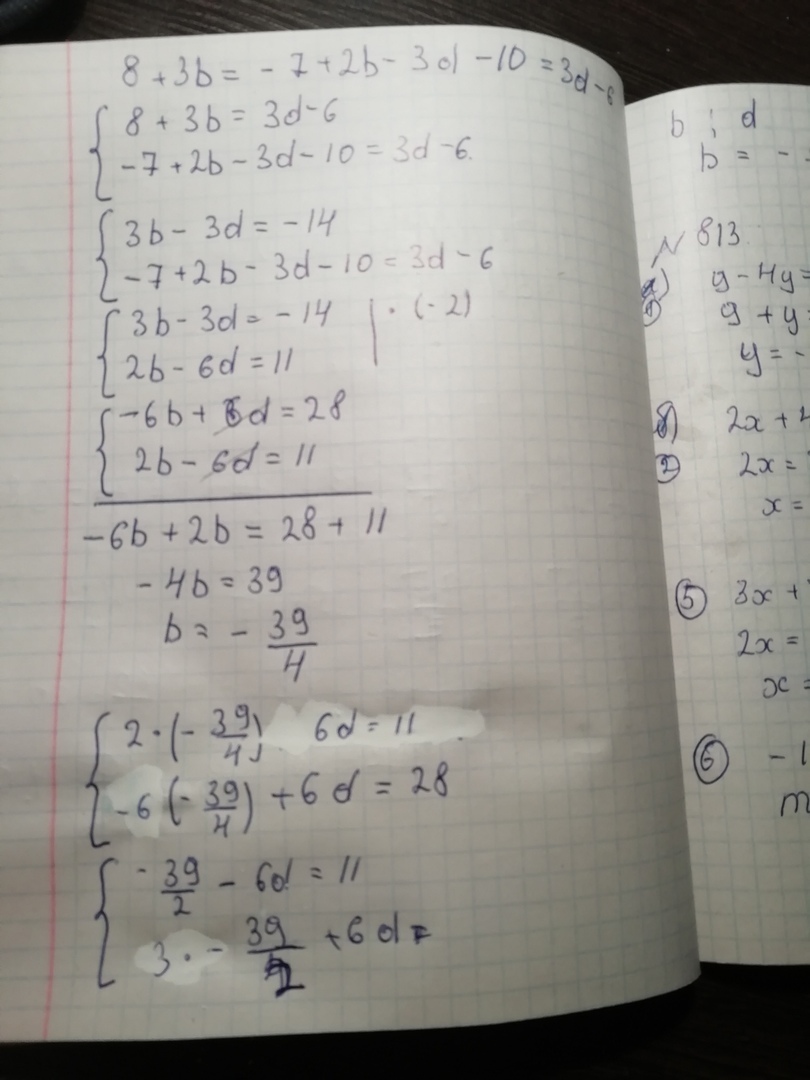 8 + 3b = - 7 + 2b - 3d - 10 = 3d - 6
8 + 3b = 3d - 6
-7 + 2b - 3d - 10 = 3d - 6.
3b - 3d = -14
-7 + 2b - 3d - 10 = 3d - 6
3b - 3d = -14 | · (-2)
2b - 6d = 11
-6b + 6d = 28
2b - 6d = 11
-6b + 2b = 28 + 11
- 4b = 39
b = - 39/4
2 · (- 39/4) 6d = 11
-6 (- 39/4) + 6d = 28
- 39/2 - 6d = 11
3 · - 39/2 + 6d =
b ; d
b = -
№ 813
y - 4y =
y + y
y = -
2x +
② 2x =
x =
⑤ 3x +
2x =
x =
⑥ - 1
m